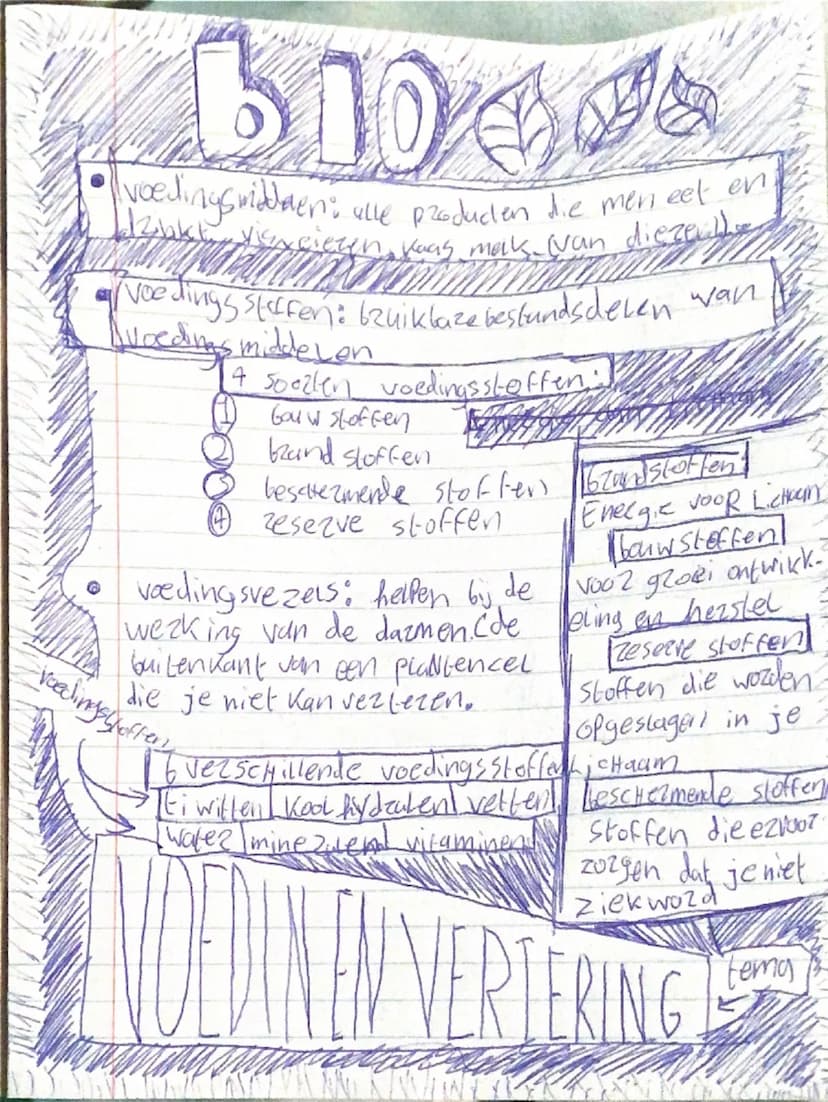 bio
voedingsmiddelen: alle producten die men eet en
drinkt. vis, vleizen, kaas, melk (van dieren!).
voedingsstoffen: bruikbare bestandsdelen van
voedingsmiddelen
4 soorten voedingsstoffen:
1 bouwstoffen
2 brandstoffen
3 beschermende stoffen
4 reserve stoffen
voedingsvezels: helpen bij de
werking van de darmen. (de
buitenkant van een plantencel
die je niet kan verteren.
voedingsstoffen
6 verschillende voedingsstoffen
Eiwitten koolhydraten vetten
water mineralen vitaminen
brandstoffen
Energie voor Lichaam
bouwstoffen
voor groei ontwikk-
eling en herstel
reserve stoffen
stoffen die worden
opgeslagen in je
Lichaam
beschermende stoffen
stoffen die ervoor
zorgen dat je niet
ziek word
VOEDIN EN VERTERING
tema